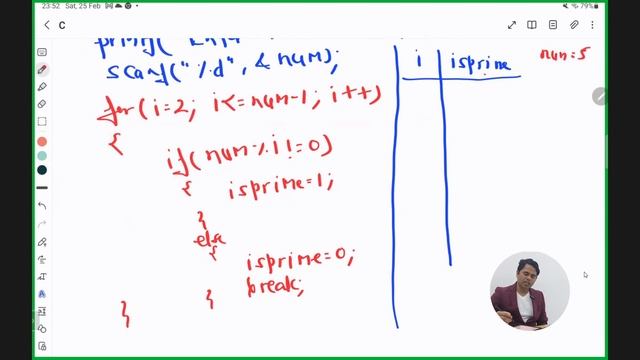 23:52 Sat, 25 Feb
79%
C
scanf("%d", & num);
for(i=2; i<=num-1; i++)
{
if(num%i!=0)
{ isprime=1;
}
else
{
isprime=0;
break;
}
}
i isprime
num=5